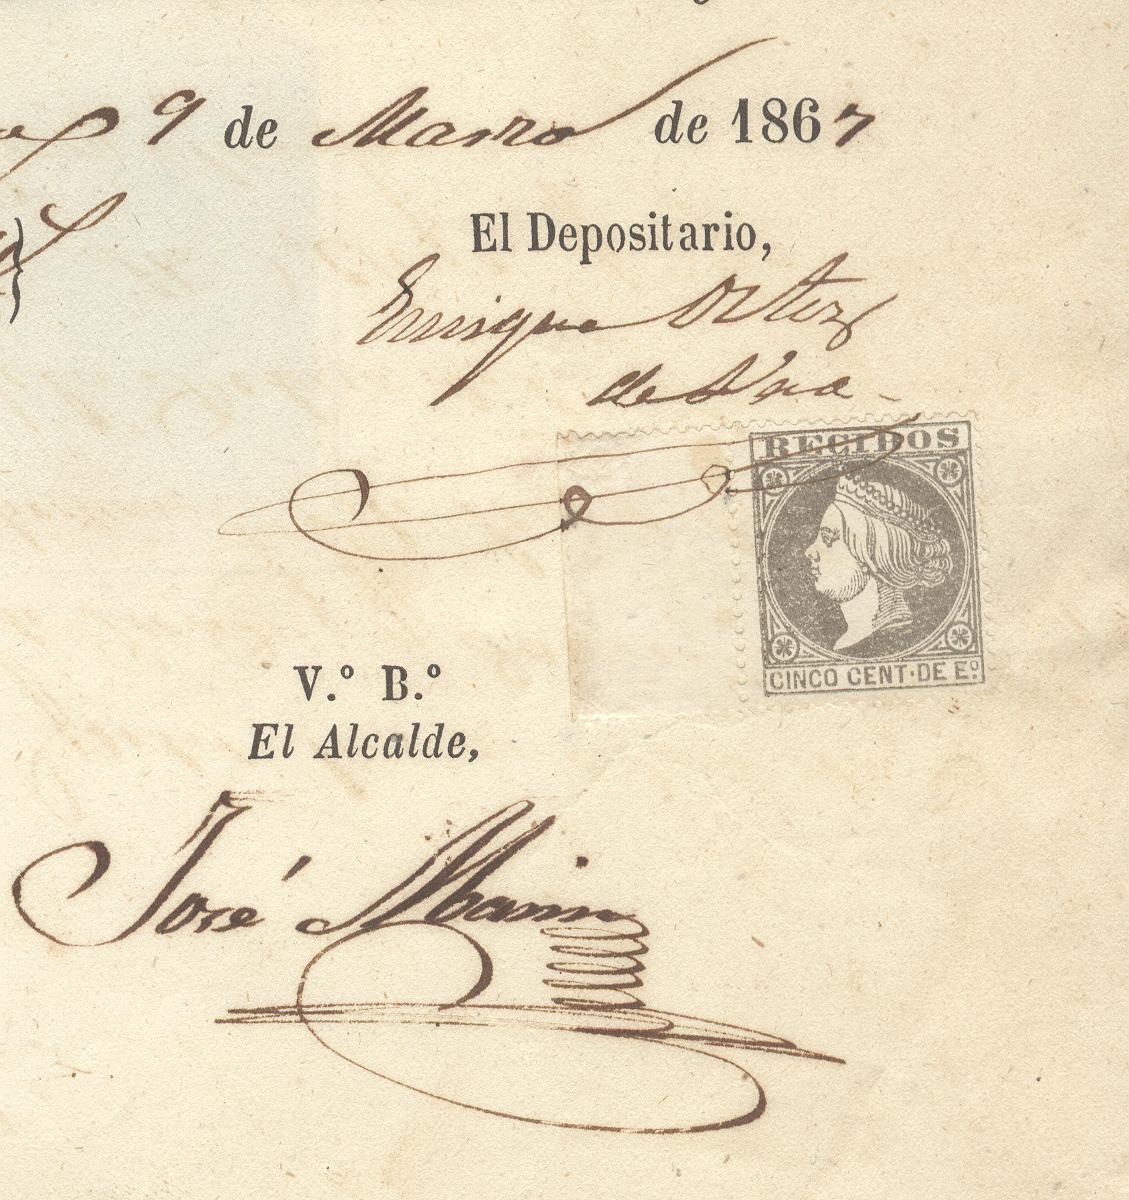 9 de Marzo de 1867
El Depositario,
Enrique Ortiz
de
RECIBOS
CINCO CENT. DE Eº.
V.º B.º
El Alcalde,
José Marin